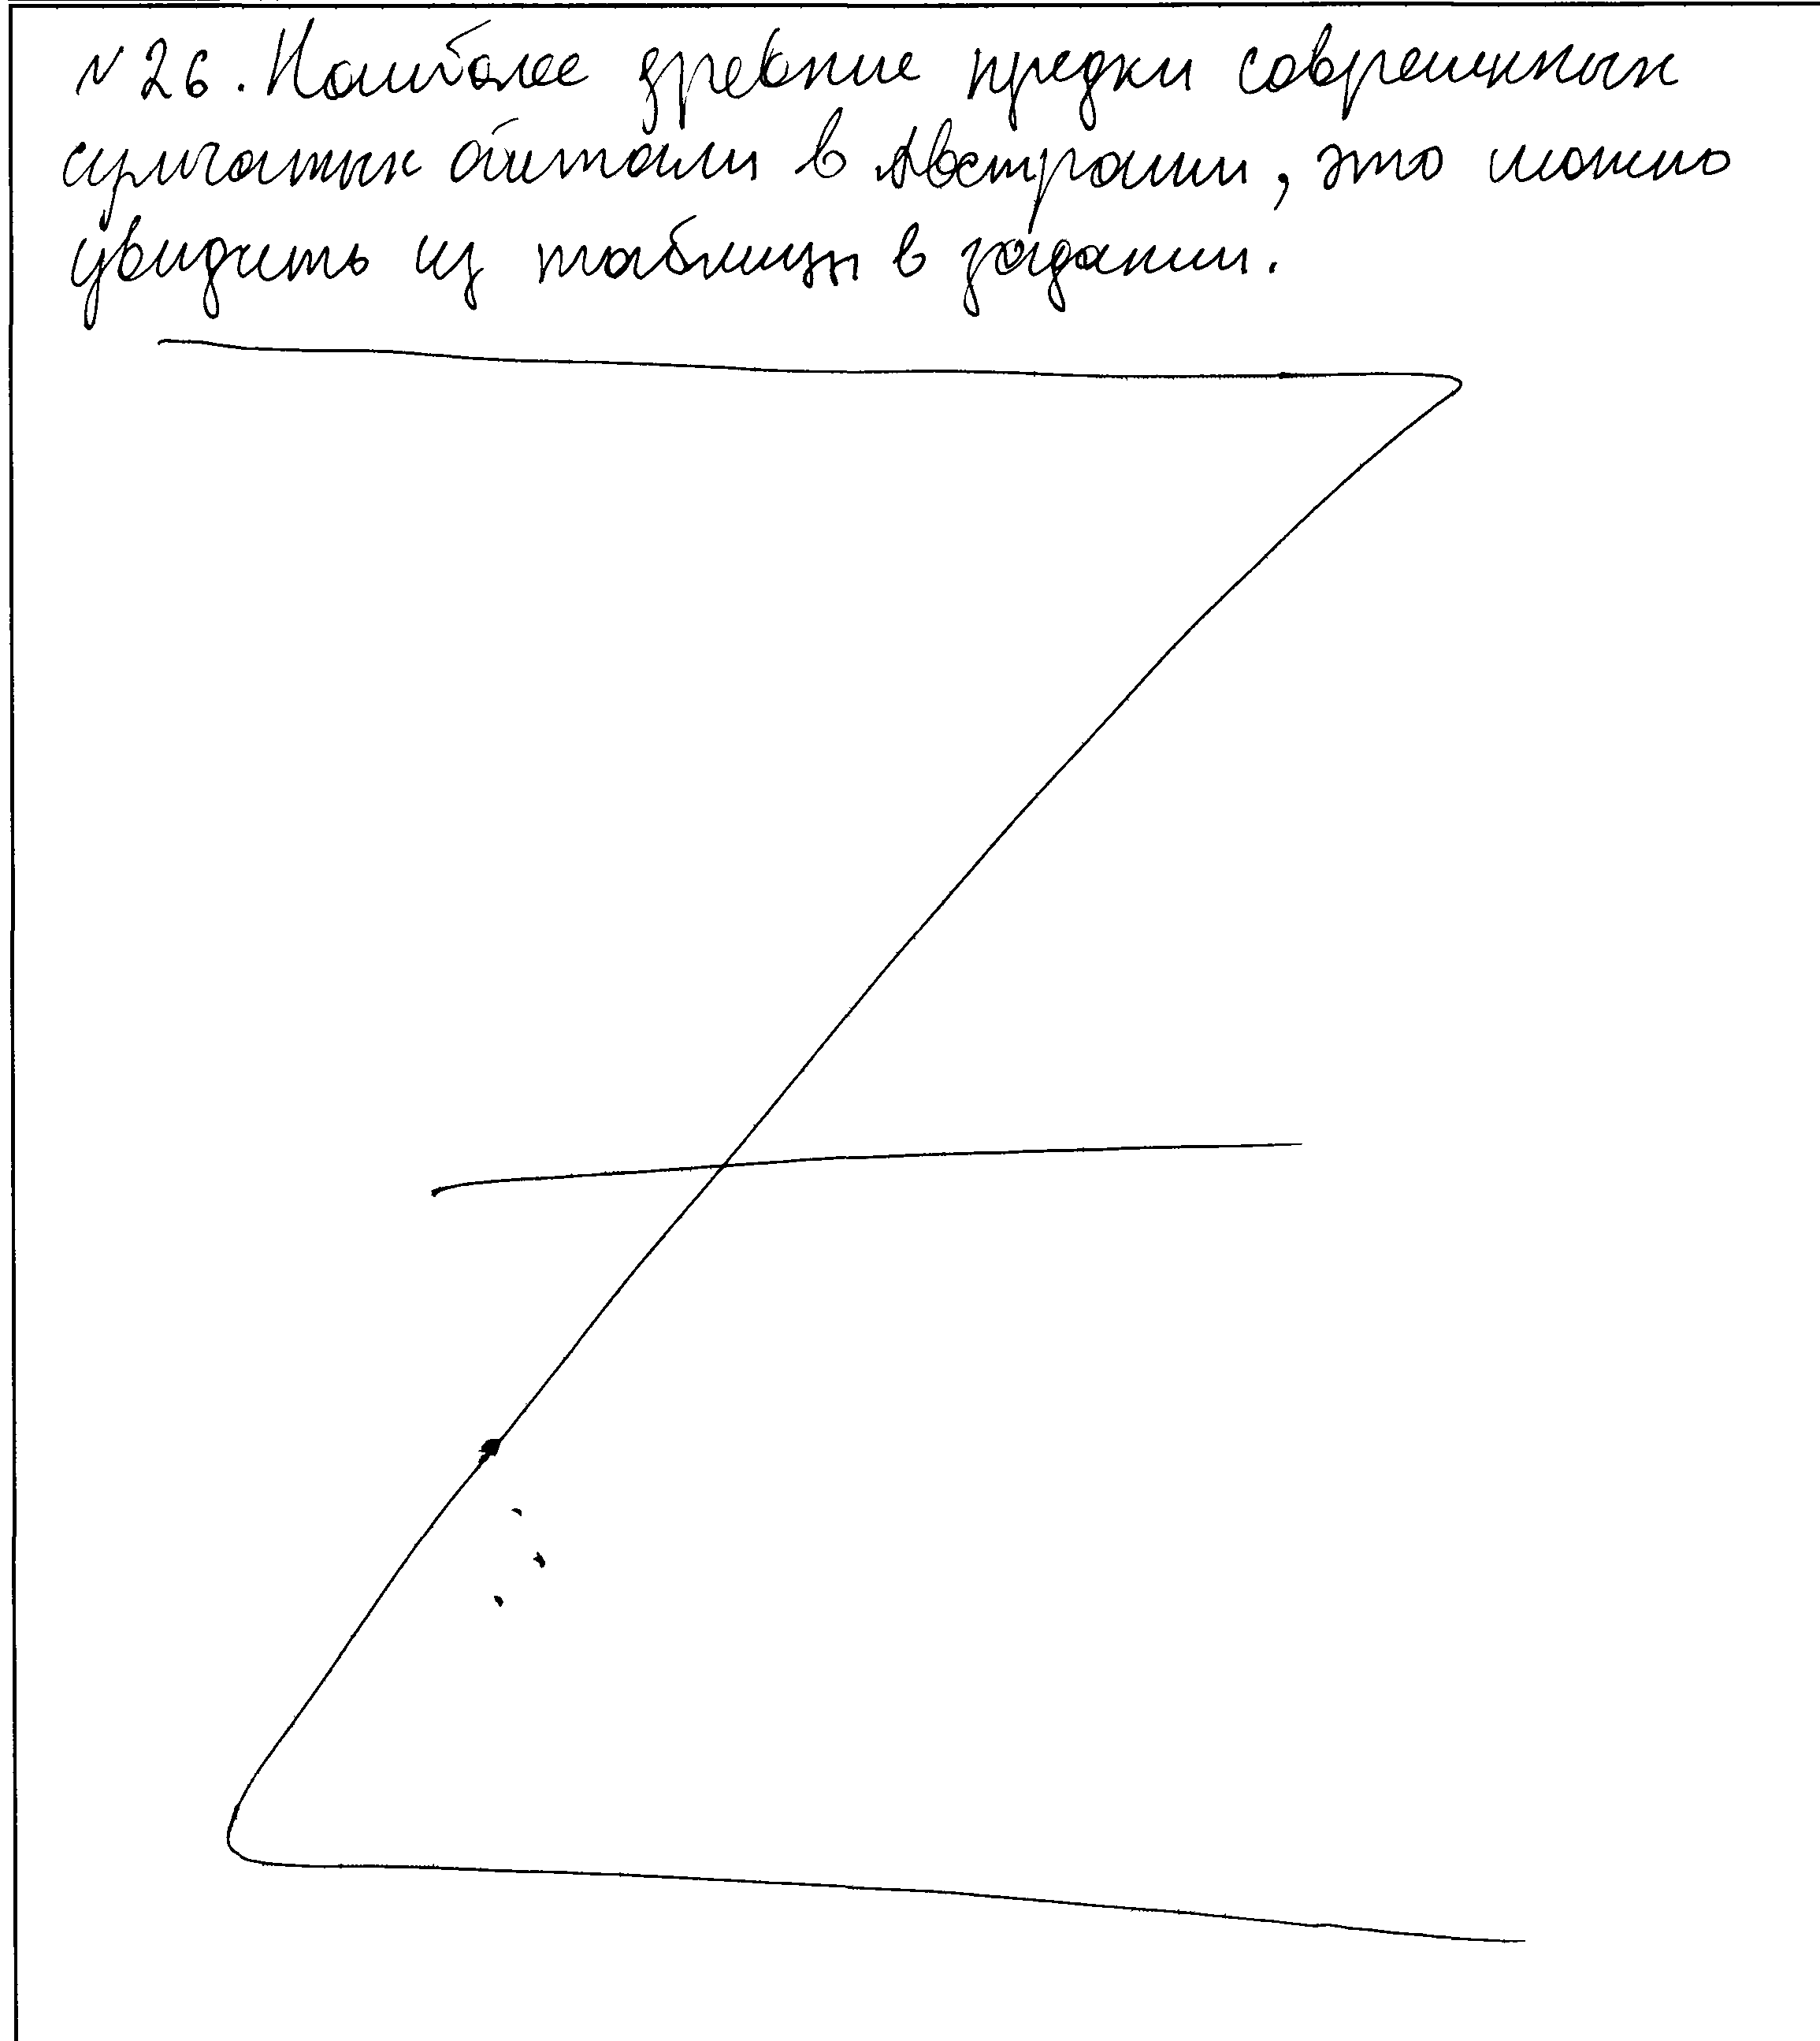 №26. Наиболее древние предки современных
сумчатых обитали в Австралии, это можно
увидеть из таблицы в задании.